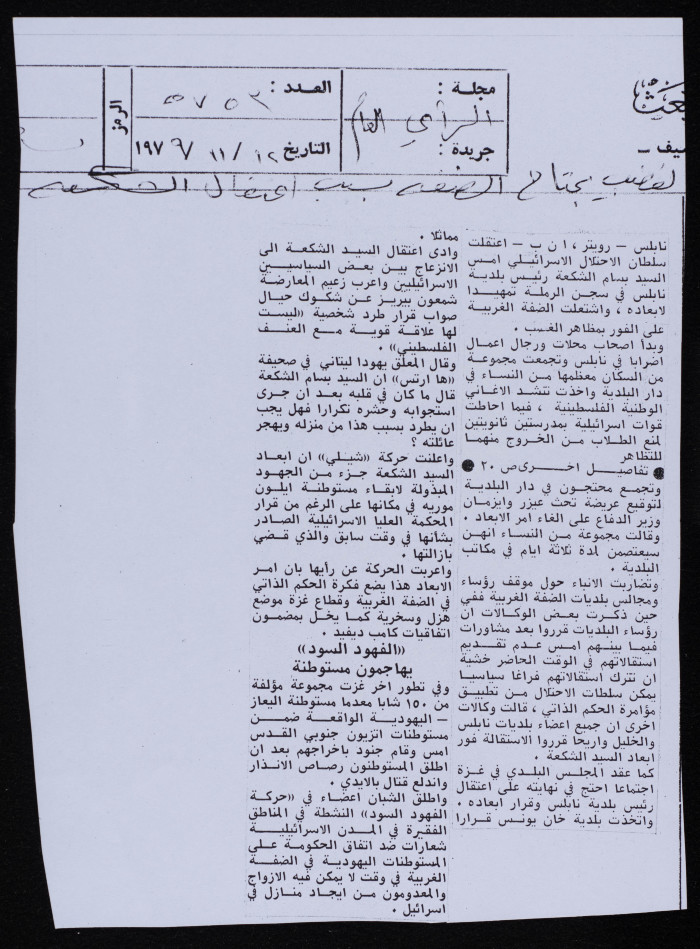 مجلة :
العدد :
الرمز
الرأي العام
٥٧٥٢
جريدة :
التاريخ ١٢ / ١١ / ١٩٧٩
الغضب يجتاح الضفة بسبب اعتقال الشكعة
نابلس – رويتر ، ا ن ب – اعتقلت
سلطان الاحتلال الاسرائيلي امس
السيد بسام الشكعة رئيس بلدية
نابلس في سجن الرملة تمهيدا
لابعاده ، واشتعلت الضفة الغربية
على الفور بمظاهر الغضب .
وبدأ اصحاب محلات ورجال اعمال
اضرابا في نابلس وتجمعت مجموعة
من السكان معظمها من النساء في
دار البلدية واخذت تنشد الاغاني
الوطنية الفلسطينية ، فيما احاطت
قوات اسرائيلية بمدرستين ثانويتين
لمنع الطلاب من الخروج منهما
للتظاهر
● تفاصيل اخرى ص ٢٠ ●
وتجمع محتجون في دار البلدية
لتوقيع عريضة تحث عيزر وايزمان
وزير الدفاع على الغاء امر الابعاد .
وقالت مجموعة من النساء انهن
سيعتصمن لمدة ثلاثة ايام في مكاتب
البلدية .
وتضاربت الانباء حول موقف رؤساء
ومجالس بلديات الضفة الغربية ففي
حين ذكرت بعض الوكالات ان
رؤساء البلديات قرروا بعد مشاورات
فيما بينهم امس عدم تقديم
استقالاتهم في الوقت الحاضر خشية
ان تترك استقالاتهم فراغا سياسيا
يمكن سلطات الاحتلال من تطبيق
مؤامرة الحكم الذاتي ، قالت وكالات
اخرى ان جميع اعضاء بلديات نابلس
والخليل واريحا قرروا الاستقالة فور
ابعاد السيد الشكعة .
كما عقد المجلس البلدي في غزة
اجتماعا احتج في نهايته على اعتقال
رئيس بلدية نابلس وقرار ابعاده .
واتخذت بلدية خان يونس قرارا
مماثلا .
وادى اعتقال السيد الشكعة الى
الانزعاج بين بعض السياسيين
الاسرائيليين واعرب زعيم المعارضة
شمعون بيريز عن شكوك حيال
صواب قرار طرد شخصية «ليست
لها علاقة قوية مع العنف
الفلسطيني» .
وقال المعلق يهودا ليتاني في صحيفة
«ها ارتس» ان السيد بسام الشكعة
قال ما كان في قلبه بعد ان جرى
استجوابه وحشره تكرارا فهل يجب
ان يطرد بسبب هذا من منزله ويهجر
عائلته ؟
واعلنت حركة «شيلي» ان ابعاد
السيد الشكعة جزء من الجهود
المبذولة لابقاء مستوطنة ايلون
موريه في مكانها على الرغم من قرار
المحكمة العليا الاسرائيلية الصادر
بشأنها في وقت سابق والذي قضي
بازالتها .
واعربت الحركة عن رأيها بان امر
الابعاد هذا يضع فكرة الحكم الذاتي
في الضفة الغربية وقطاع غزة موضع
هزل وسخرية كما يخل بمضمون
اتفاقيات كامب ديفيد .
«الفهود السود»
يهاجمون مستوطنة
وفي تطور اخر غزت مجموعة مؤلفة
من ١٥٠ شابا معدما مستوطنة اليعاز
– اليهودية الواقعة ضمن
مستوطنات اتزيون جنوبي القدس
امس وقام جنود باخراجهم بعد ان
اطلق المستوطنون رصاص الانذار
واندلع قتال بالايدي .
واطلق الشبان اعضاء في «حركة
الفهود السود» النشطة في المناطق
الفقيرة في المدن الاسرائيلية
شعارات ضد اتفاق الحكومة على
المستوطنات اليهودية في الضفة
الغربية في وقت لا يمكن فيه الازواج
والمعدومون من ايجاد منازل في
اسرائيل .